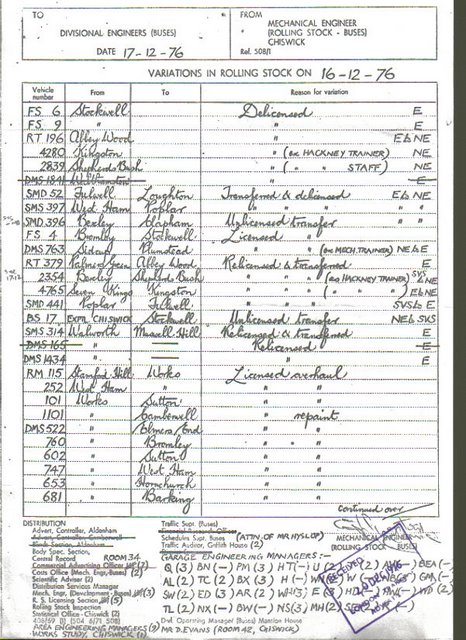 TO
DIVISIONAL ENGINEERS (BUSES)
DATE 17-12-76
FROM
MECHANICAL ENGINEER
(ROLLING STOCK - BUSES)
CHISWICK
Ref. 508/1
VARIATIONS IN ROLLING STOCK ON 16-12-76
Vehicle number From To Reason for variation
FS 6 Stockwell Delicensed E
FS 9 " " E
RT 196 Abbey Wood " E & NE
4280 Kingston " (ex HACKNEY TRAINER) NE
2839 Shepherds Bush " ( " " STAFF) NE
DMS 1841 Walthamstow " E
SMD 52 Fulwell Loughton Transferred & delicensed E & NE
SMS 397 West Ham Poplar " " " "
SMD 396 Bexley Clapham Unlicensed transfer " "
FS 4 Bromley Stockwell Licensed " E
DMS 763 Sidcup Plumstead " " (ex MECH. TRAINER) NE & E
RT 379 Palmers Green Abbey Wood Relicensed & transferred E
2354 Bexley Shepherds Bush " " " (ex HACKNEY TRAINER) SVS & NE
4765 Seven Kings Kingston " " " ( " " " ) E & NE
SMD 441 Poplar Fulwell " " " SVS & E
BS 17 EXPTL CHISWICK Stockwell Unlicensed transfer NE & SVS
SMS 314 Walworth Muswell Hill Relicensed & transferred E
DMS 165 " — Relicensed E
DMS 1434 " — " E
RM 115 Stamford Hill Works Licensed overhaul
252 West Ham " " "
101 Works Sutton " "
1101 " Camberwell " repaint
DMS 522 " Elmers End " "
760 " Bromley " "
602 " Sutton " "
747 " West Ham " "
653 " Hornchurch " "
681 " Barking " "
continued over
DISTRIBUTION
Advert. Controller, Aldenham
Advert. Controller, Camberwell
Body Spec. Section,
Central Record ROOM 34
Commercial Advertising Officer
Costs Office (Mech. Engr. Buses) (2)
Scientific Adviser (2)
Distribution Services Manager
Mech. Engr. (Development - Buses)
R. S. Licensing Section
Rolling Stock Inspection
Statistical Office, Chiswick (2)
AREA ENGINEERING MANAGERS
WORKS STUDY, CHISWICK
Traffic Supt. (Buses)
Schedules Supt. (Buses) (ATTN. OF MR HYSLOP)
Traffic Auditor, Griffith House (2)
GARAGE ENGINEERING MANAGERS:-
Q (3) BN (—) PM (3)
AL (2) TC (2) BX (3) H (—)
SW (2) ED (3) AR (2)
TL (2) NX (—) BW (—) NS (3)
Divl. Operating Manager (Buses) Mansion House
MR D. EVANS (ROOM 42, CHISWICK)
MECHANICAL ENGINEER
(ROLLING STOCK - BUSES)
RECEIVED